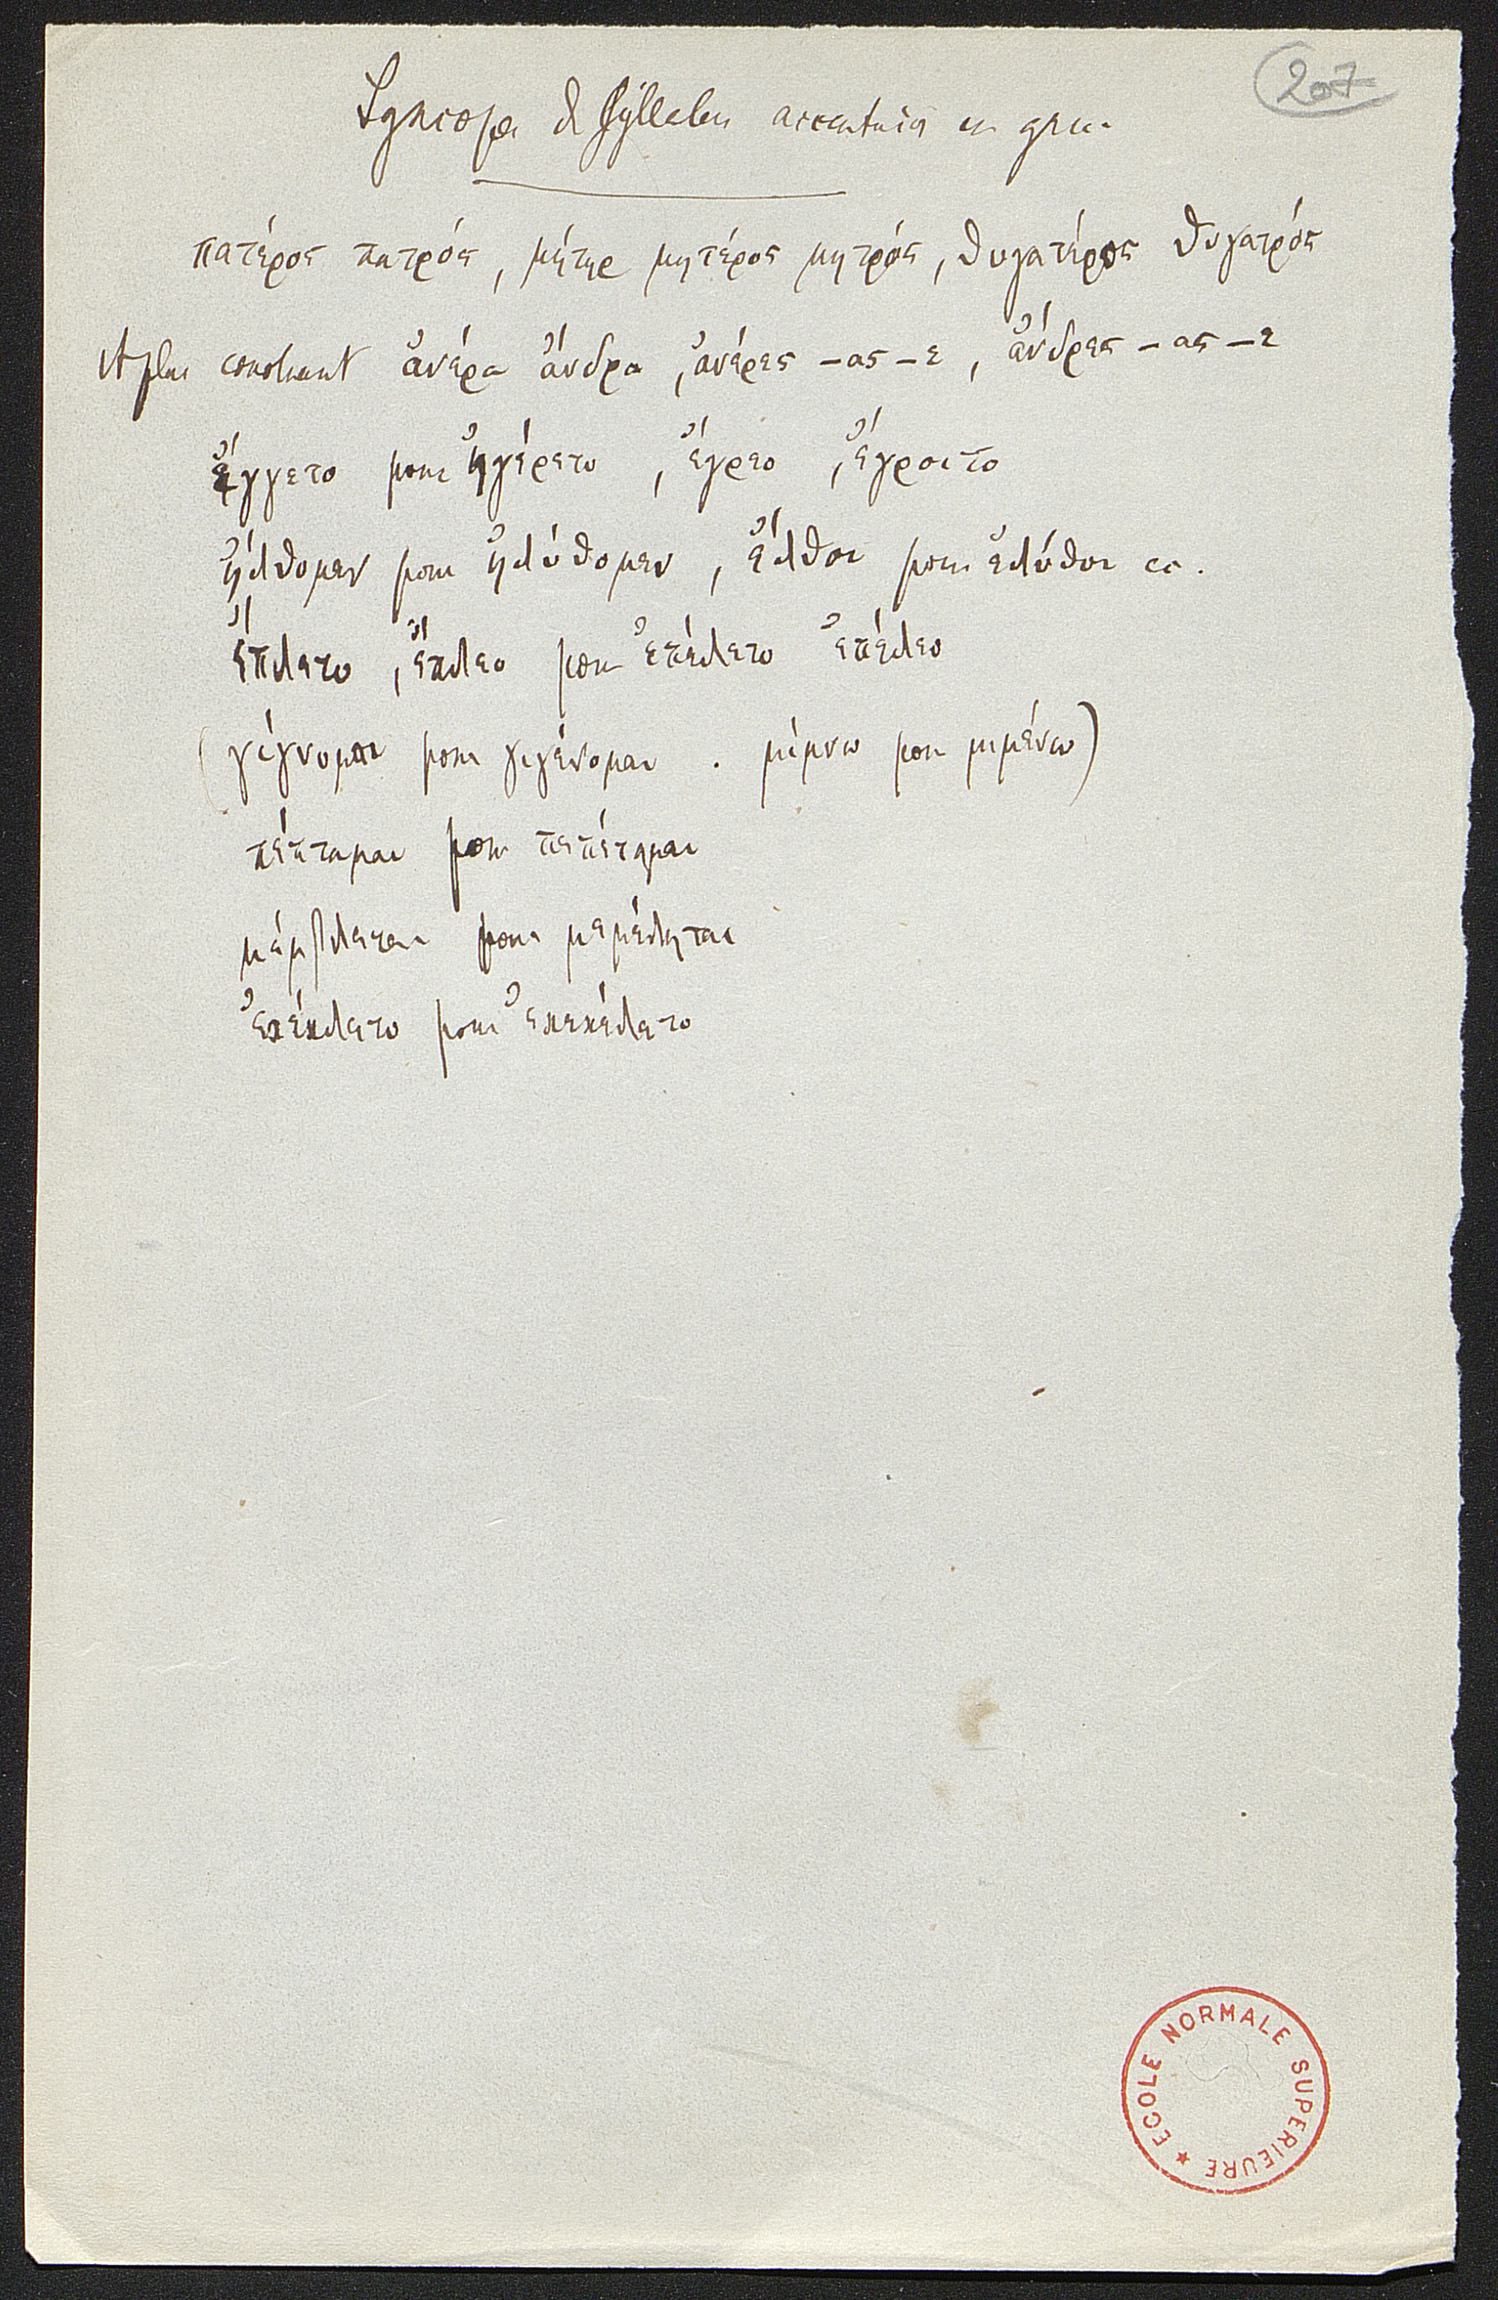 207
Syncope de syllabes accentuées en grec
πατέρος πατρός, μήτηρ μητέρος μητρός, θυγατέρος θυγατρός
Et plus constraint ἀνέρα ἄνδρα, ἀνέρες -ας -ε, ἄνδρες -ας -ε
ἔγρετο pour ἠγέρετο, ἔγρεο, ἔγροιτο
ἤλθομεν pour ἠλύθομεν, ἔλθοι pour ἐλύθοι
ἔπλετο, ἔπλεο pour ἐπέλετο ἐπέλεο
(γίγνομαι pour γιγένομαι. μίμνω pour μιμένω)
πέπταμαι pour πεπέταμαι
μέμβλεται pour μεμέληται
ἐκέκλετο pour ἐκεκέλετο
ECOLE NORMALE SUPERIEURE